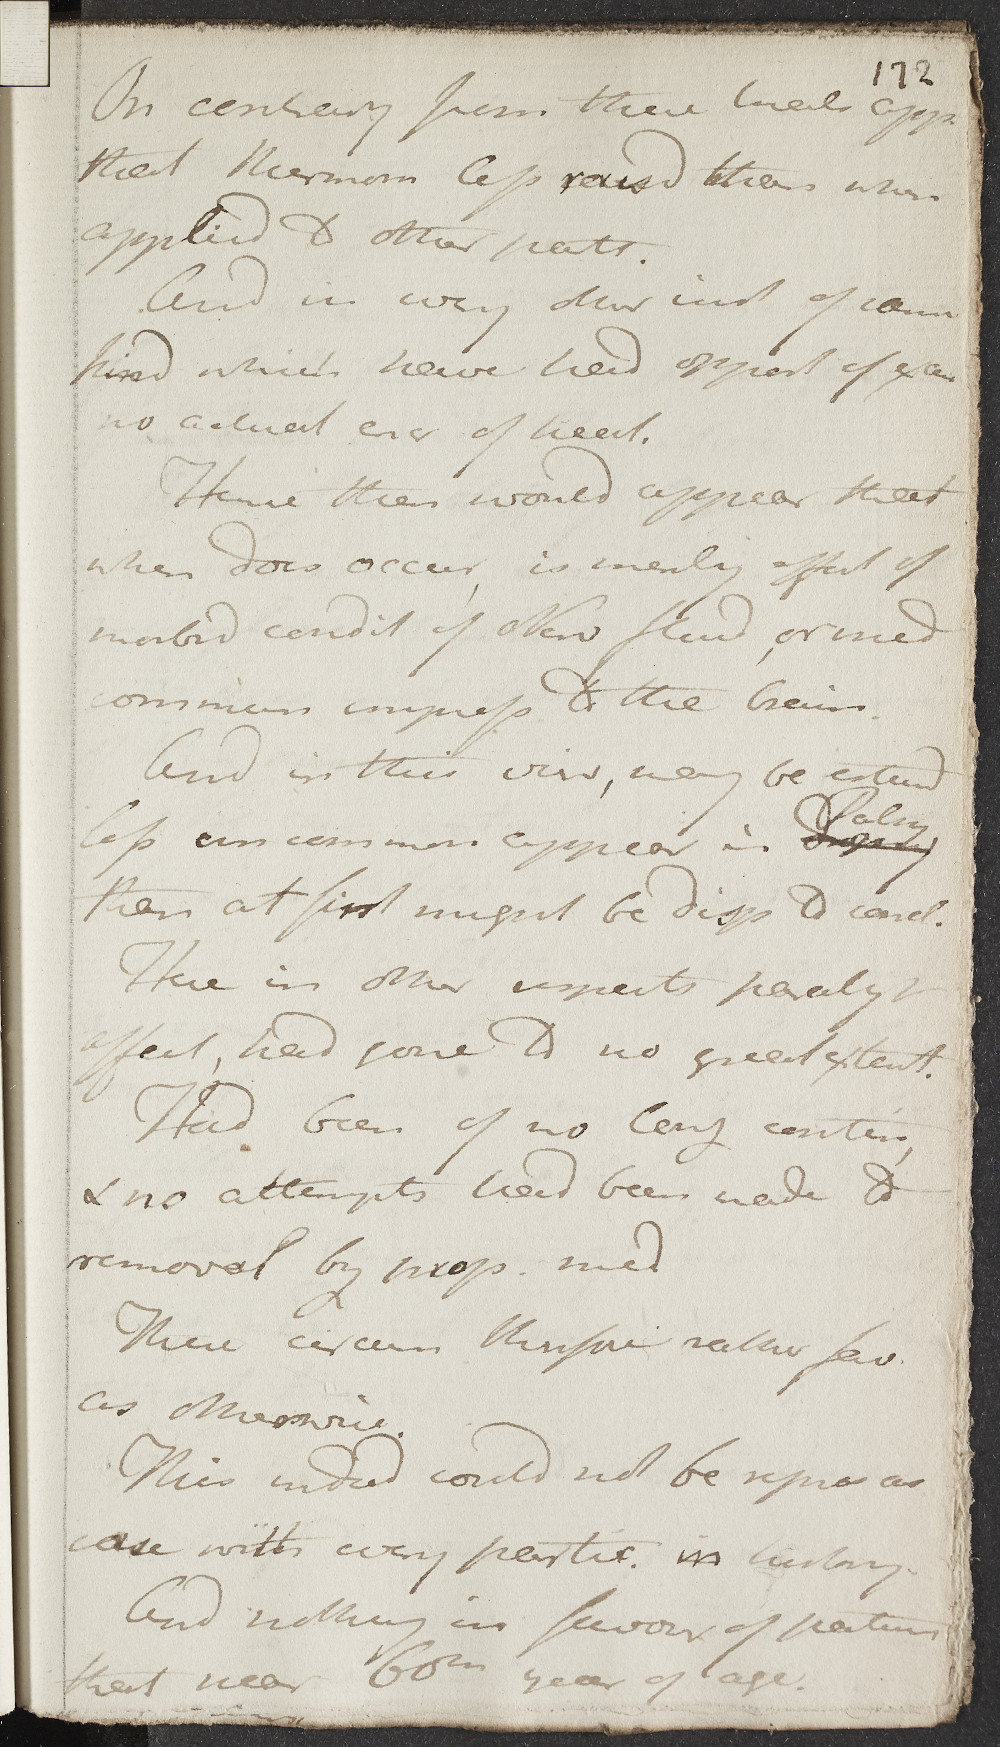 172
On contrary from these trials app.
that thermom less raisd then when
applied to other parts.
And in every other inst of same
kind which have had opport of exam
no actual incr of heat.
Hence then would appear that
when does occur, is merely effect of
morbid condit of Nerv fluid, or med
commun impress. to the brain.
And in this view, may be estimd
less uncommon appear in Palsy
then at first might be disp to concl.
Here in other respects paralyt
affect, had gone to no great extent.
Had been of no long contin,
& no attempts had been made to
removal by prop. med
These circum therfore rather fav.
as otherwise.
This indeed could not be repres as
case with every partic. in history.
And nothing in favour of patient
that near 60th year of age.